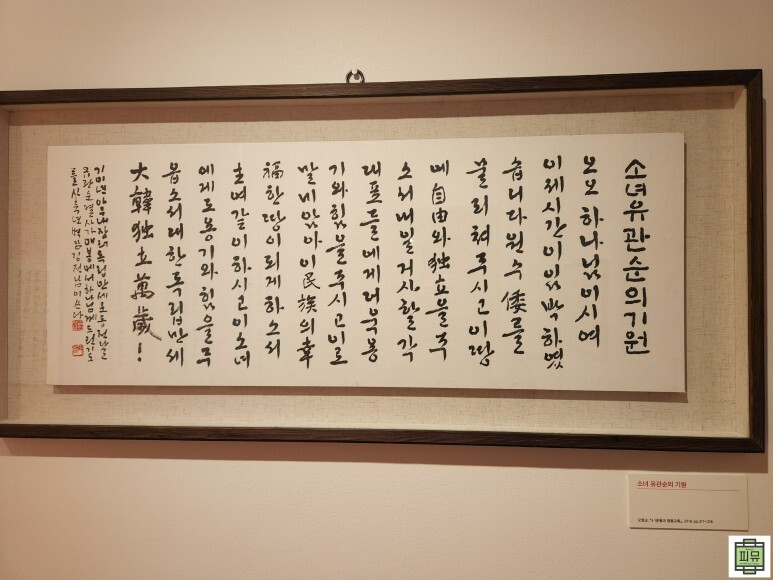 소녀유관순의기원
오오 하나님이시여
이제시간이임박하였
습니다원수 倭를
물리쳐주시고이땅
에自由와独立을주
소서내일거사할각
대표들에게더욱용
기와힘을주시고이로
말미암아이民族의幸
福한땅이되게하소서
주여같이하시고이소녀
에게도용기와힘을주
옵소서대한독립만세
大韓独立萬歲!
기미년아우내장터독립만세운동전날
유관순열사가매봉에서하나님께드린기도
소녀 유관순의 기원
피뮤